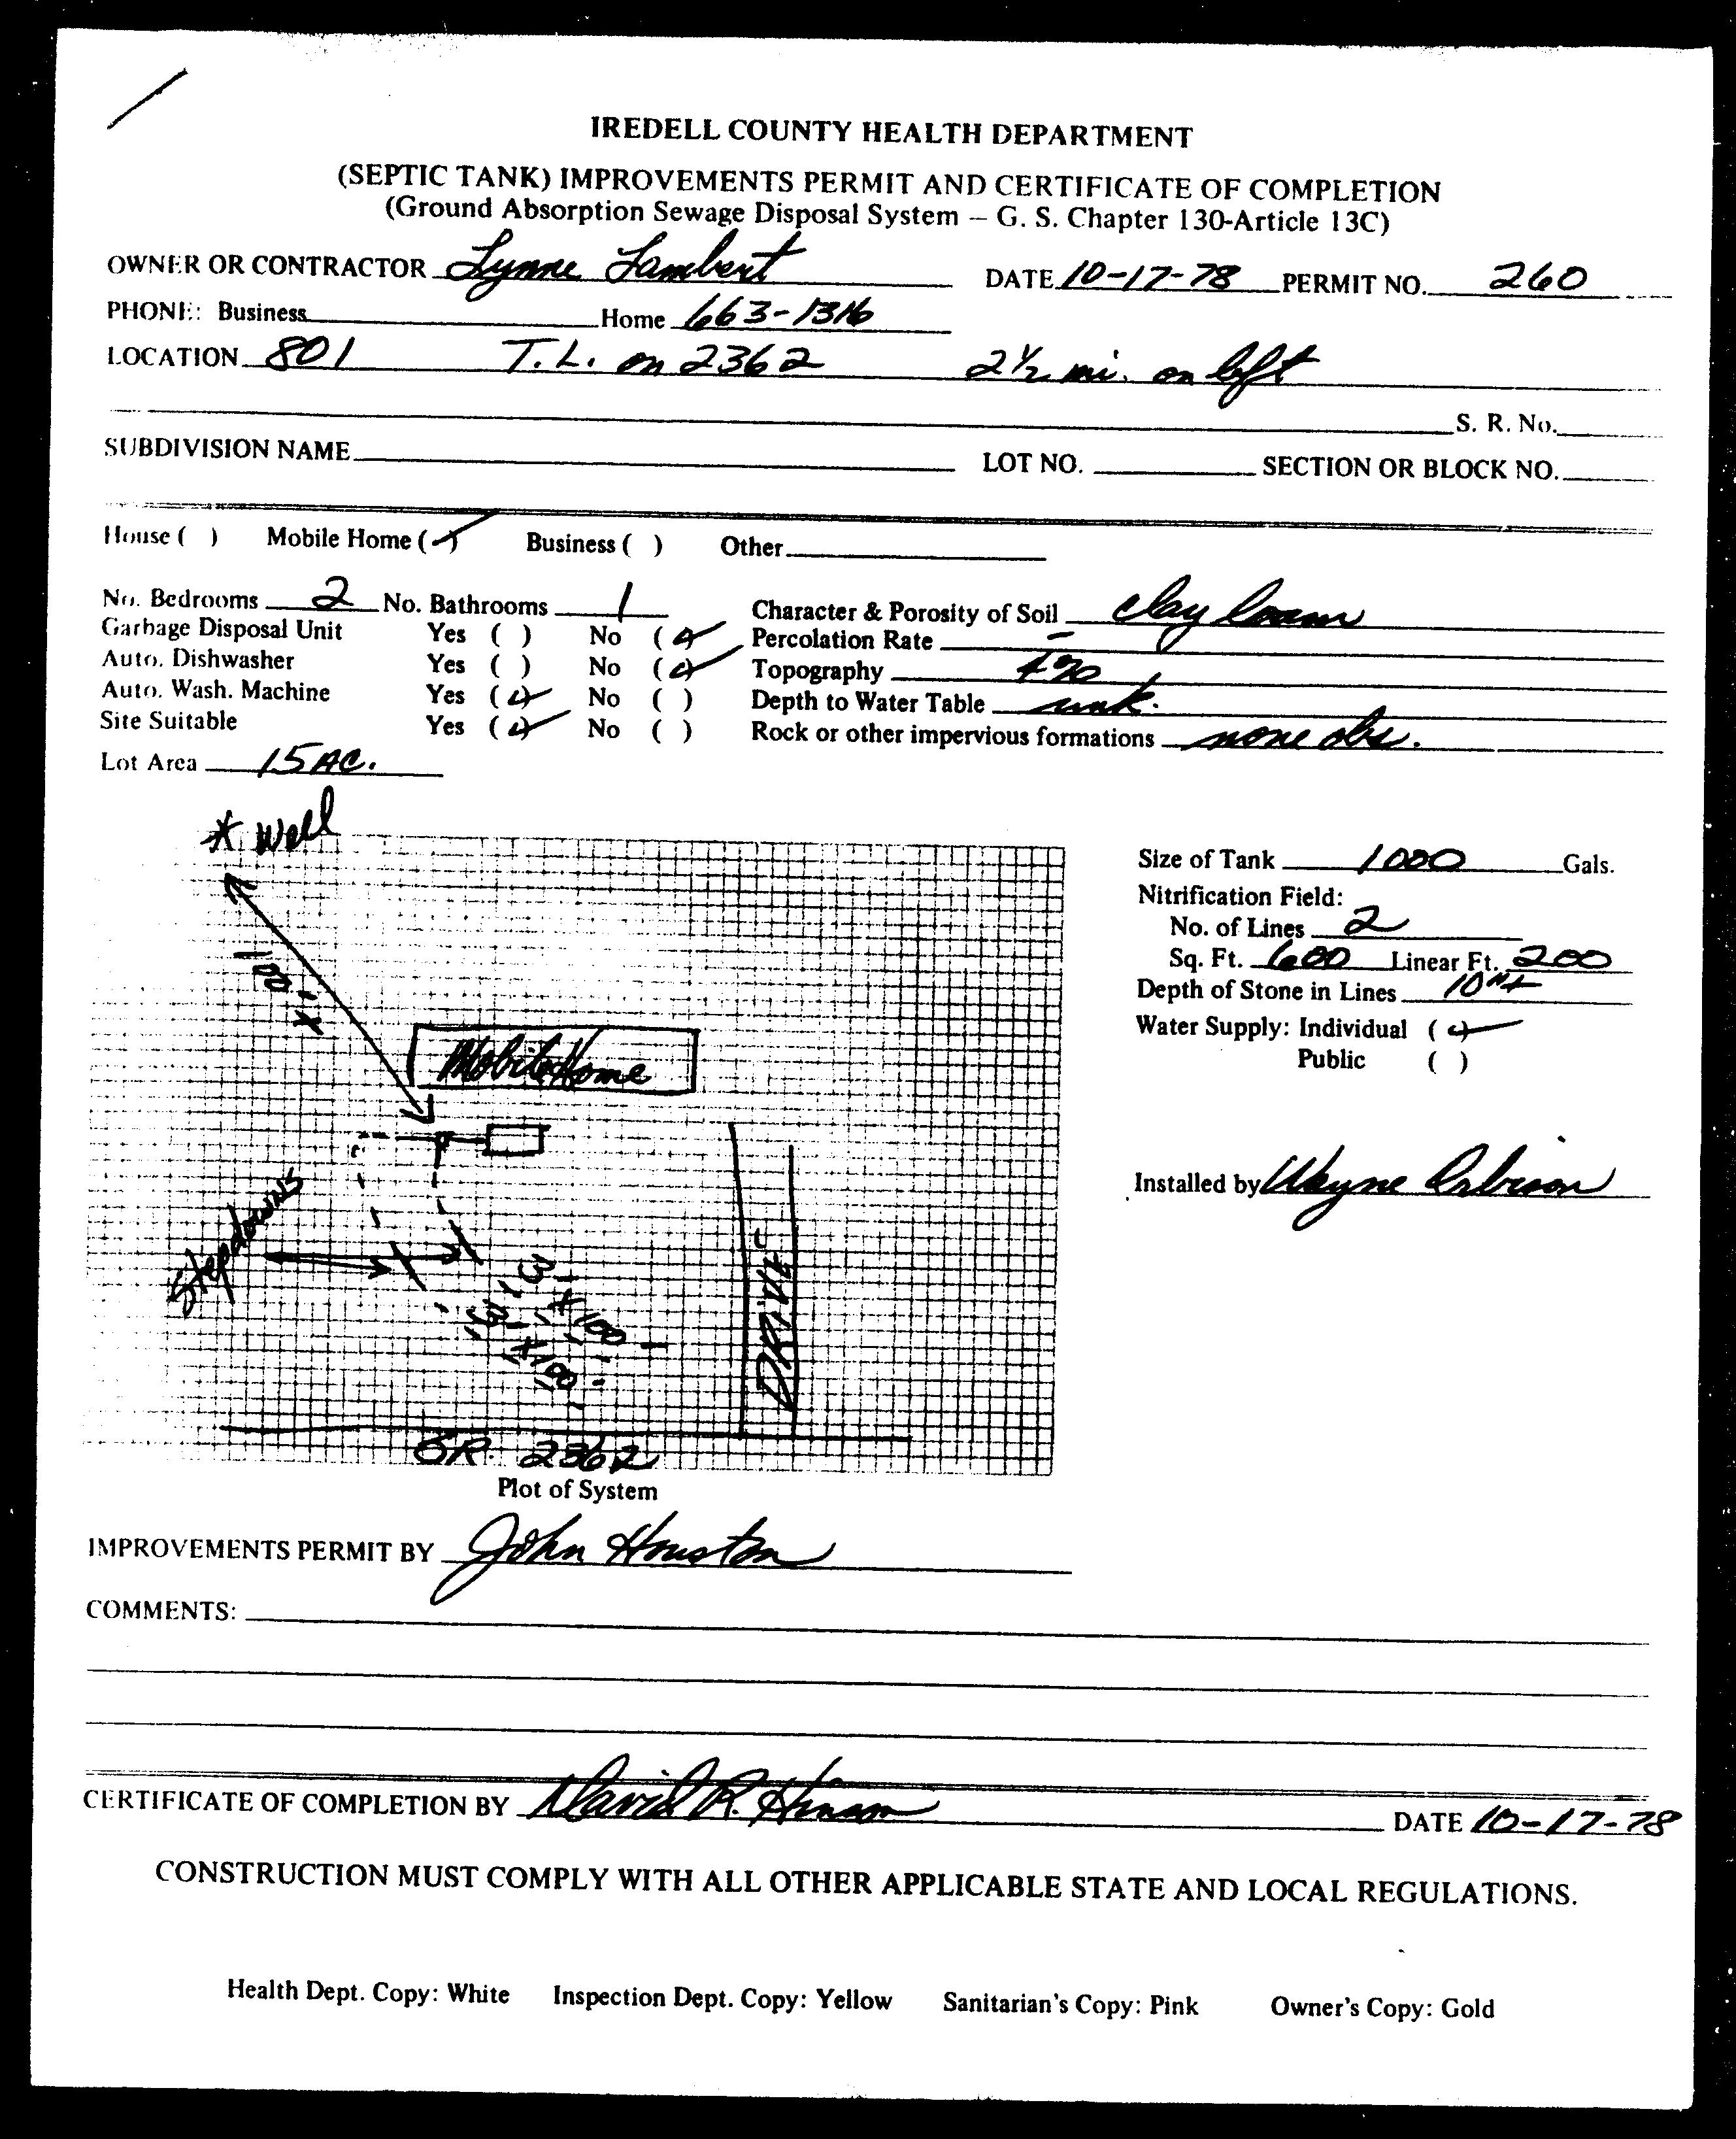 IREDELL COUNTY HEALTH DEPARTMENT
(SEPTIC TANK) IMPROVEMENTS PERMIT AND CERTIFICATE OF COMPLETION
(Ground Absorption Sewage Disposal System – G. S. Chapter 130-Article 13C)
OWNER OR CONTRACTOR Lynne Lambert DATE 10-17-78 PERMIT NO. 260
PHONE: Business Home 663-1316
LOCATION 801 T.L. on 2362 2½ mi. on left
S. R. No.
SUBDIVISION NAME LOT NO. SECTION OR BLOCK NO.
House ( ) Mobile Home (✓) Business ( ) Other
No. Bedrooms 2 No. Bathrooms 1 Character & Porosity of Soil clay loam
Garbage Disposal Unit Yes ( ) No (✓) Percolation Rate –
Auto. Dishwasher Yes ( ) No (✓) Topography
Auto. Wash. Machine Yes (✓) No ( ) Depth to Water Table unk.
Site Suitable Yes (✓) No ( ) Rock or other impervious formations none obs.
Lot Area 15 AC.
* Well
100'+
Mobile Home
Stepdowns
3' x 100'
3' x 100'
DRIVE
SR 2362
Plot of System
Size of Tank 1000 Gals.
Nitrification Field:
No. of Lines 2
Sq. Ft. 600 Linear Ft. 200
Depth of Stone in Lines 10"+
Water Supply: Individual (✓)
Public ( )
Installed by Wayne
IMPROVEMENTS PERMIT BY John Houston
COMMENTS:
CERTIFICATE OF COMPLETION BY David R. DATE 10-17-78
CONSTRUCTION MUST COMPLY WITH ALL OTHER APPLICABLE STATE AND LOCAL REGULATIONS.
Health Dept. Copy: White Inspection Dept. Copy: Yellow Sanitarian's Copy: Pink Owner's Copy: Gold